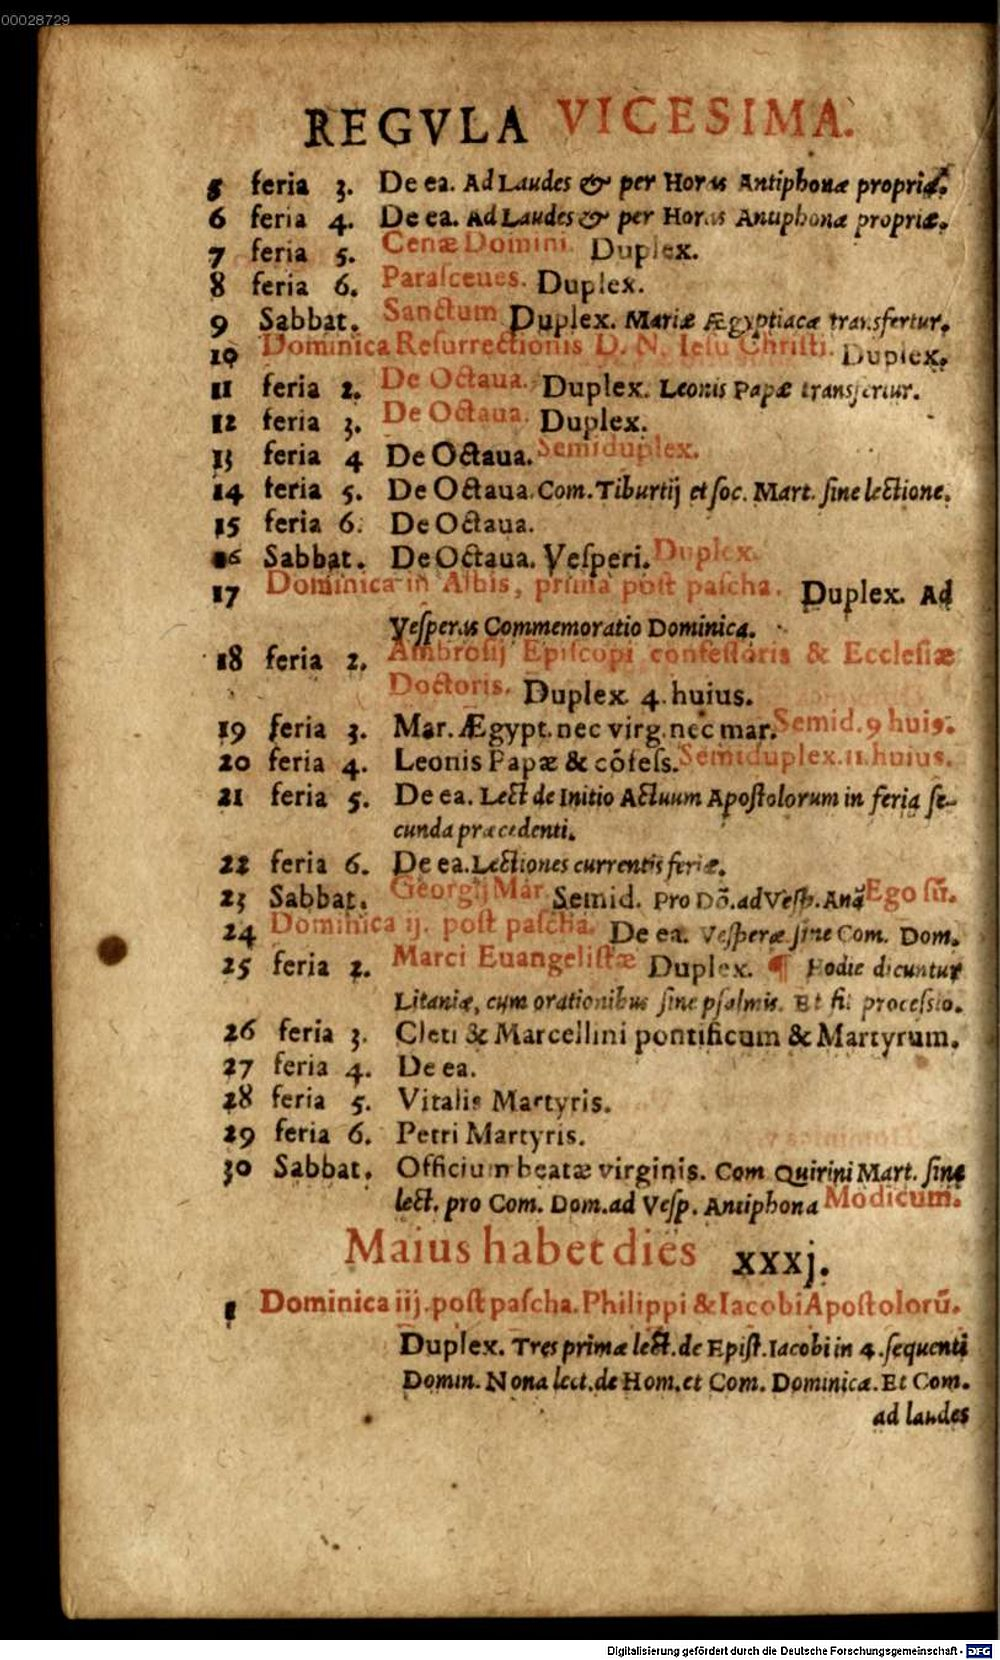 00028729
REGVLA VICESIMA.
5 feria 3. De ea. Ad Laudes & per Horas Antiphonæ propriæ.
6 feria 4. De ea. Ad Laudes & per Horas Antiphonæ propriæ.
7 feria 5. Cenæ Domini. Duplex.
8 feria 6. Paraſceues. Duplex.
9 Sabbat. Sanctum Duplex. Mariæ Ægyptiacæ transfertur.
10 Dominica Reſurrectionis D. N. Ieſu Chriſti. Duplex.
11 feria 2. De Octaua. Duplex. Leonis Papæ transfertur.
12 feria 3. De Octaua. Duplex.
13 feria 4 De Octaua. Semiduplex.
14 feria 5. De Octaua. Com. Tiburtij et ſoc. Mart. ſine lectione.
15 feria 6. De Octaua.
16 Sabbat. De Octaua. Veſperi. Duplex.
17 Dominica in Albis, prima poſt paſcha. Duplex. Ad
Veſperas Commemoratio Dominicæ.
18 feria 2. Ambroſij Epiſcopi confeſſoris & Eccleſiæ
Doctoris. Duplex. 4. huius.
19 feria 3. Mar. Ægypt. nec virg. nec mar. Semid. 9 huiꝰ.
20 feria 4. Leonis Papæ & cōfeſs. Semiduplex. 11. huius.
21 feria 5. De ea. Lect de Initio Actuum Apoſtolorum in feria ſe-
cunda præcedenti.
22 feria 6. De ea. Lectiones currentis feriæ.
23 Sabbat. Georgij Mar. Semid. Pro Dō. ad Veſp. Anā Ego sū.
24 Dominica ij. poſt paſcha. De ea. Veſperæ ſine Com. Dom.
25 feria 2. Marci Euangeliſtæ Duplex. ¶ Hodie dicuntur
Litaniæ, cum orationibus ſine pſalmis. Et fit proceſsio.
26 feria 3. Cleti & Marcellini pontificum & Martyrum.
27 feria 4. De ea.
28 feria 5. Vitalis Martyris.
29 feria 6. Petri Martyris.
30 Sabbat. Officium beatæ virginis. Com Quirini Mart. ſine
lect. pro Com. Dom. ad Veſp. Antiphona Modicum.
Maius habet dies xxxj.
1 Dominica iij. poſt paſcha. Philippi & Iacobi Apoſtolorū.
Duplex. Tres primæ lect. de Epiſt. Iacobi in 4. ſequenti
Domin. Nona lect. de Hom. et Com. Dominicæ. Et Com.
ad laudes
Digitalisierung gefördert durch die Deutsche Forschungsgemeinschaft - DFG